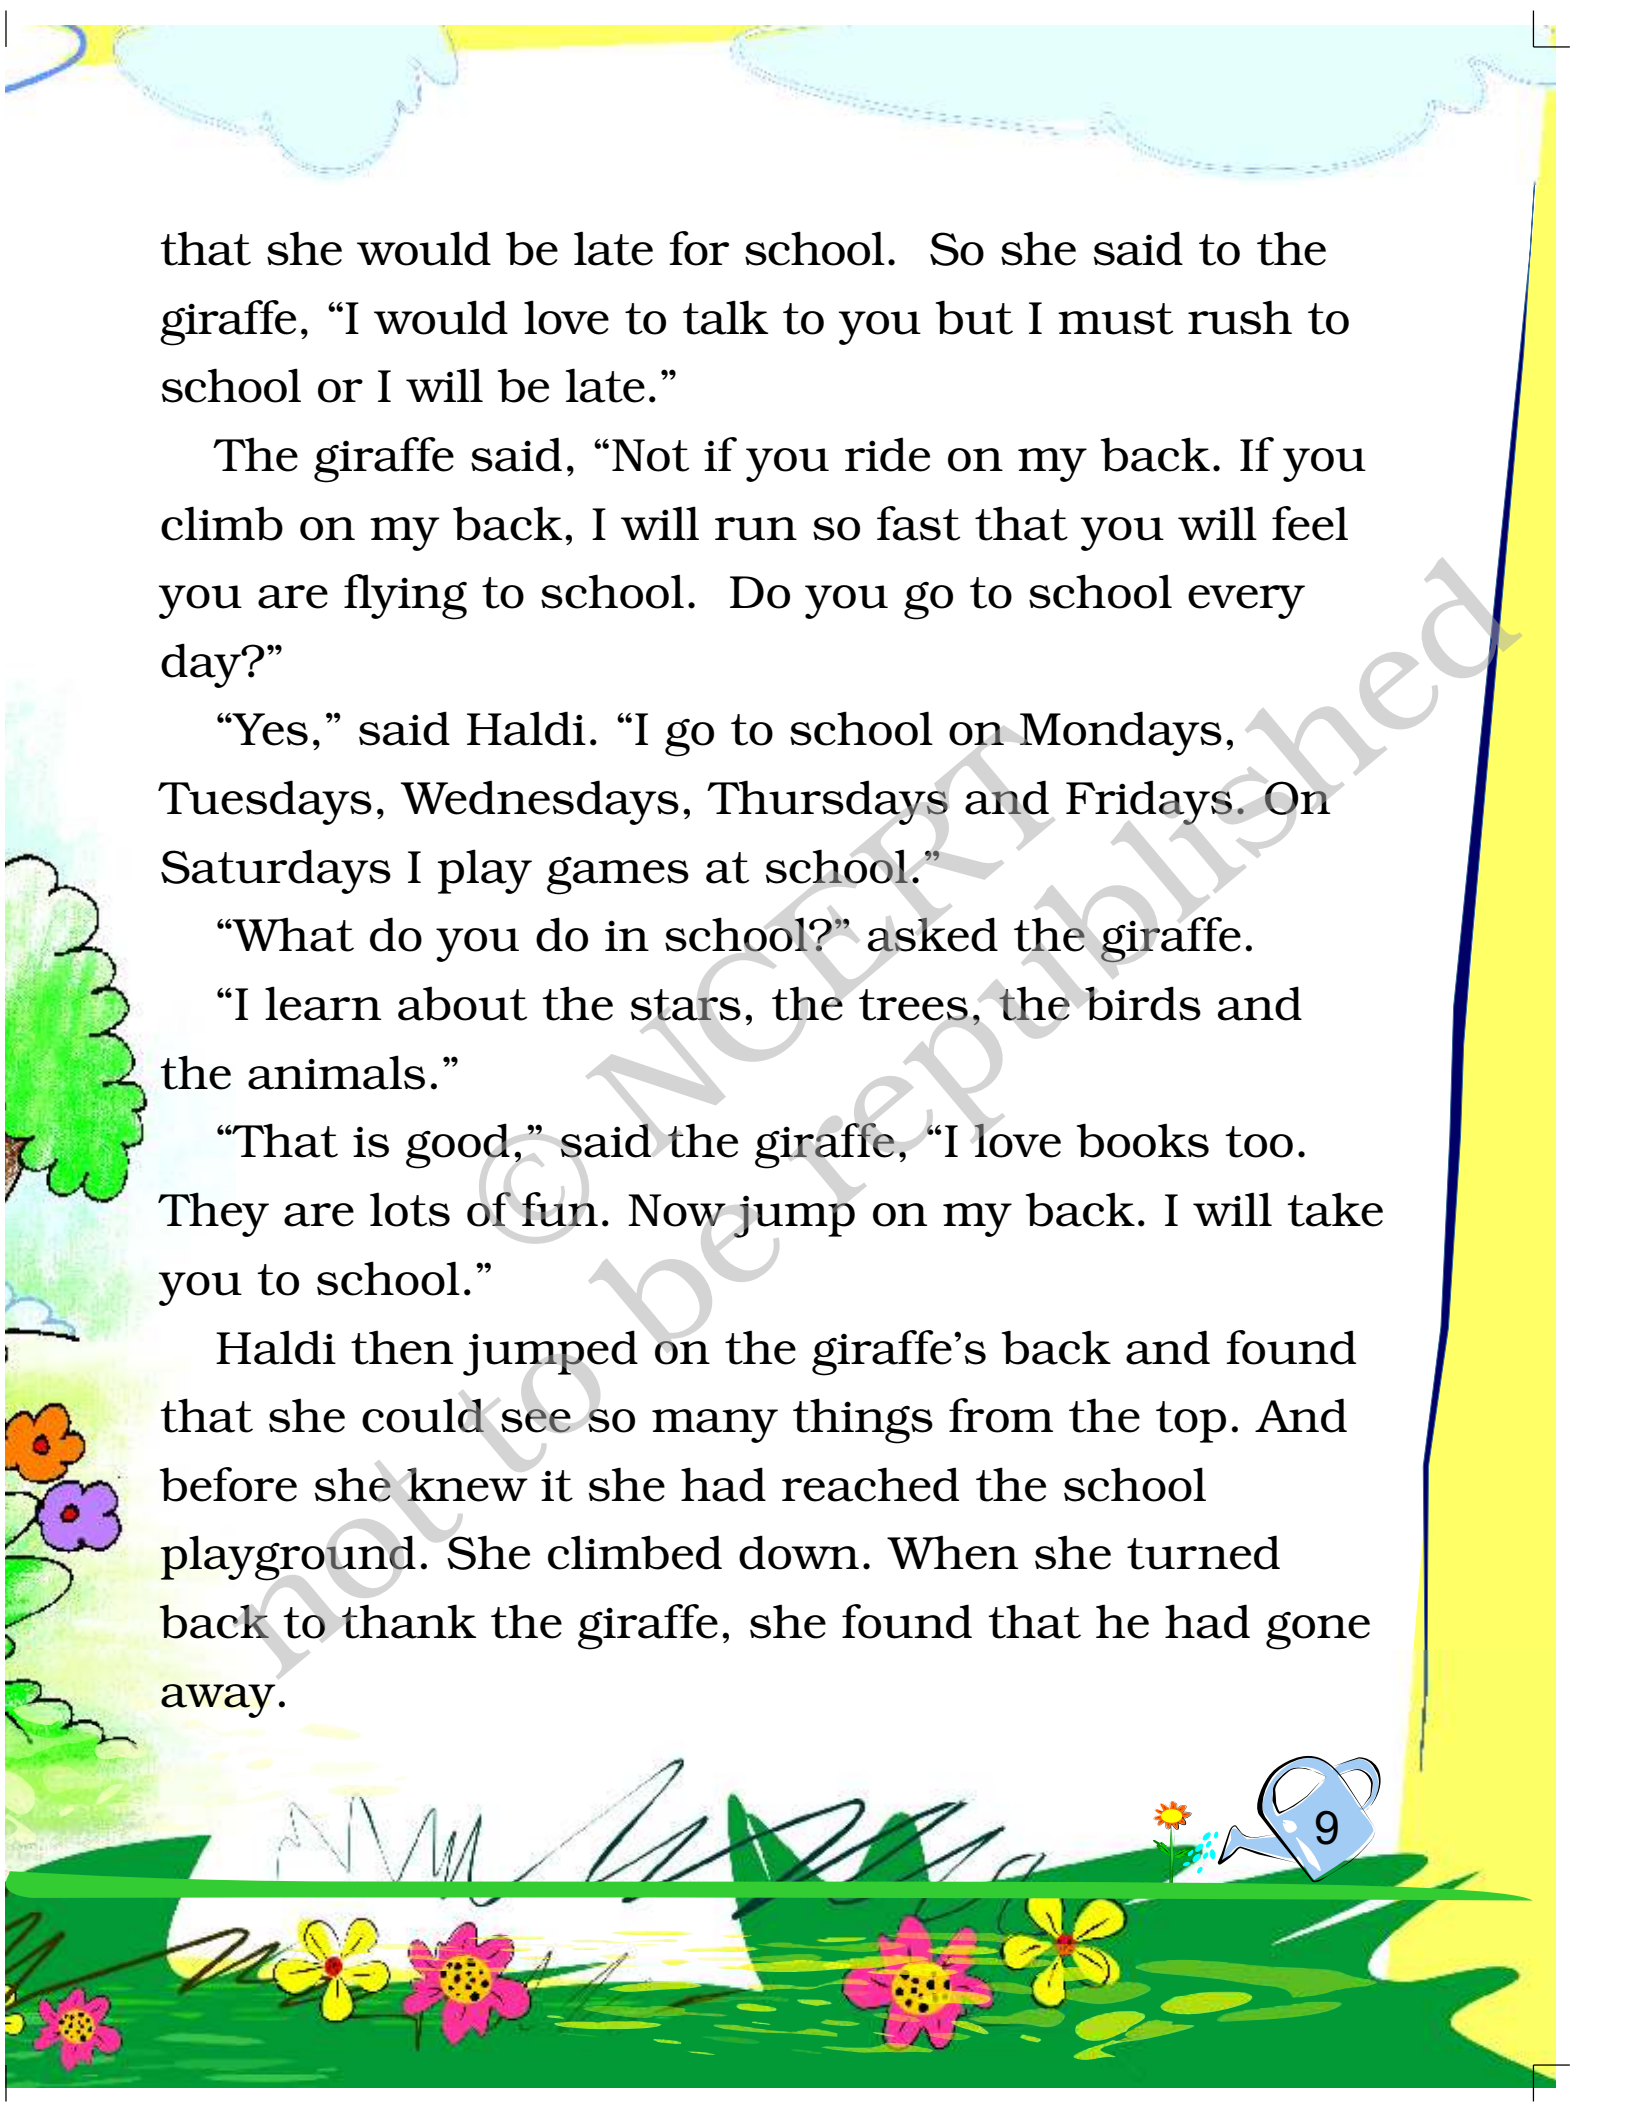 that she would be late for school.  So she said to the
giraffe, “I would love to talk to you but I must rush to
school or I will be late.”
The giraffe said, “Not if you ride on my back. If you
climb on my back, I will run so fast that you will feel
you are flying to school.  Do you go to school every
day?”
“Yes,” said Haldi. “I go to school on Mondays,
Tuesdays, Wednesdays, Thursdays and Fridays. On
Saturdays I play games at school.”
“What do you do in school?” asked the giraffe.
“I learn about the stars, the trees, the birds and
the animals.”
“That is good,” said the giraffe, “I love books too.
They are lots of fun. Now jump on my back. I will take
you to school.”
Haldi then jumped on the giraffe’s back and found
that she could see so many things from the top. And
before she knew it she had reached the school
playground. She climbed down. When she turned
back to thank the giraffe, she found that he had gone
away.
9
© NCERT
not to be republished